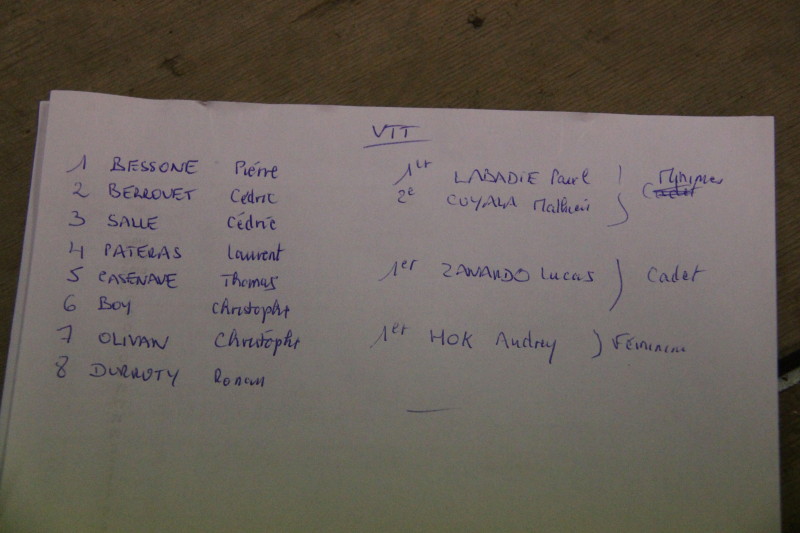 VTT
1 BESSONE Pierre
2 BERROUET Cédric
3 SALLE Cédric
4 PATERAS Laurent
5 CASENAVE Thomas
6 BOY Christophe
7 OLIVAN Christophe
8 DURRUTY Ronan
1er LABADIE Paul ) Minimes
2e CUYALA Mathieu
1er ZANARDO Lucas ) Cadet
1er HOK Audrey ) Féminine